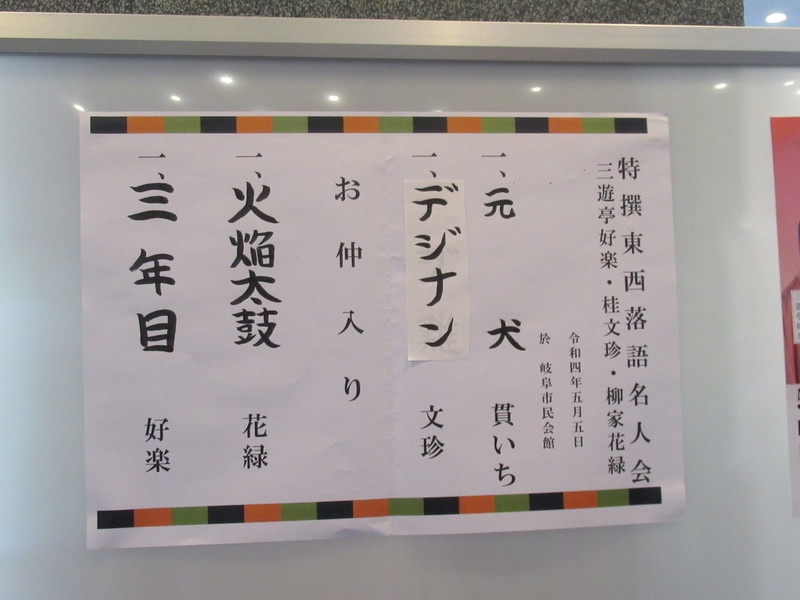 特撰東西落語名人会
三遊亭好楽・桂文珍・柳家花緑
令和四年五月五日
於 岐阜市民会館
一、元犬 貫いち
一、デジナン 文珍
お仲入り
一、火焔太鼓 花緑
一、三年目 好楽